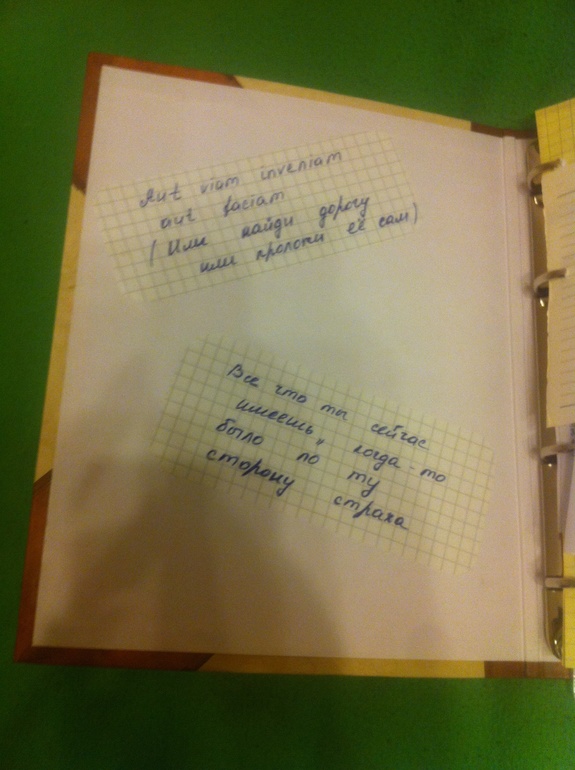 Aut viam inveniam
aut faciam
(Или найди дорогу
или проложи её сам)
Все что ты сейчас
имеешь, когда-то
было по ту
сторону страха